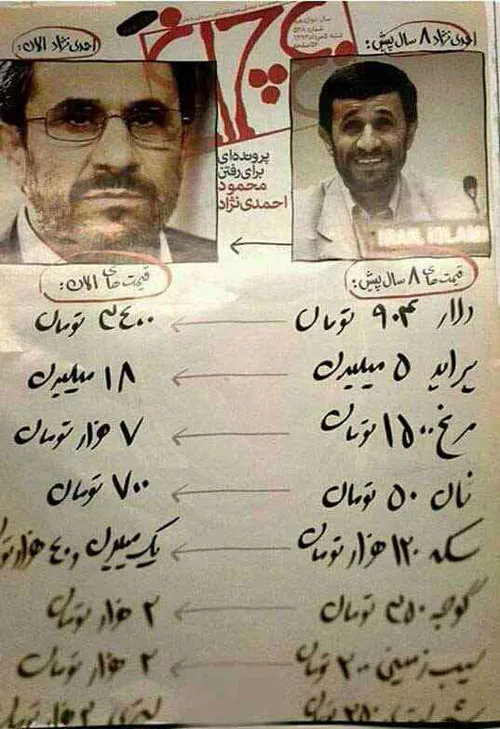 احمدی نژاد ۸ سال پیش:
احمدی نژاد الان:
پرونده‌ای
برای رفتن
محمود
احمدی نژاد
قیمت های ۸ سال پیش:
قیمت های الان:
دلار ۹۰۴ تومان
۳۴۰۰ تومان
پراید ۵ میلیون
۱۸ میلیون
مرغ ۱۵۰۰ تومان
۷ هزار تومان
نان ۵۰ تومان
۷۰۰ تومان
سکه ۱۲۰ هزار تومان
یک میلیون و ۴۰ هزار تو
گوجه ۳۵۰ تومان
۲ هزار تومان
سیب زمینی ۳۰۰ تومان
۲ هزار تومان